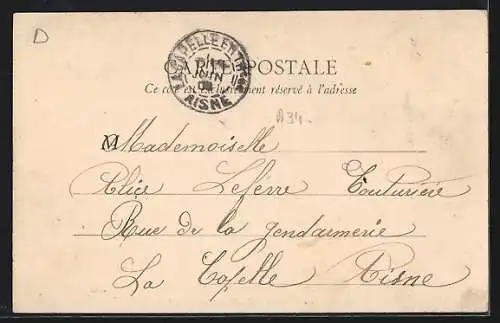 D
LA CAPELLE EN THIER
JUIN
AISNE
CARTE POSTALE
Ce côté est exclusivement réservé à l'adresse
A34-
M Mademoiselle
Alice Lefèvre Couturière
Rue de la Gendarmerie
La Capelle Aisne